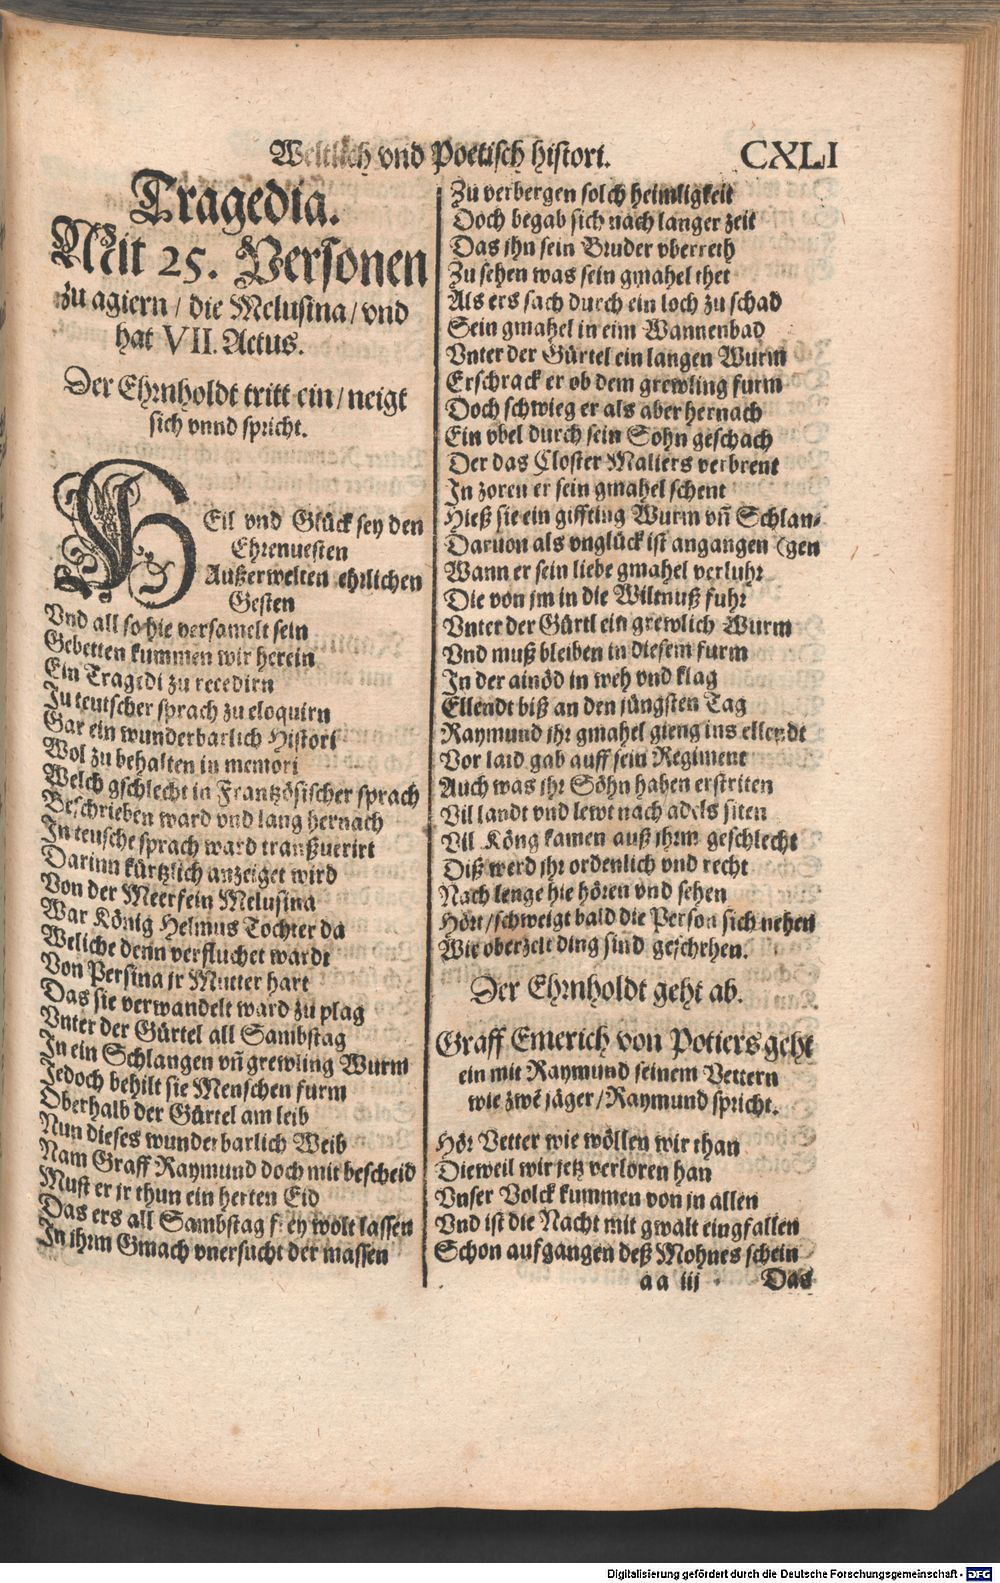 Weltlich vnd Poetisch histori. CXLI
Tragedia.
Mit 25. Personen
zu agiern / die Melusina / vnd
hat VII. Actus.
Der Ehrnholdt tritt ein / neigt
sich vnnd spricht.
HEil vnd Glück sey den
Ehrenuesten
Außerwelten ehrlichen
Gesten
Vnd all so hie versamelt sein
Gebetten kummen wir herein
Ein Tragedi zu recedirn
In teutscher sprach zu eloquirn
Gar ein wunderbarlich Histori
Wol zu behalten in memori
Welch gschlecht in Frantzösischer sprach
Beschrieben ward vnd lang hernach
In teusche sprach ward tranßuerirt
Darinn kürtzlich anzeiget wird
Von der Meerfein Melusina
War König Helmus Tochter da
Weliche denn verfluchet wardt
Von Persina jr Mutter hart
Das sie verwandelt ward zu plag
Vnter der Gürtel all Sambstag
In ein Schlangen vn̄ grewling Wurm
Jedoch behilt sie Menschen furm
Oberhalb der Gürtel am leib
Nun dieses wunderbarlich Weib
Nam Graff Raymund doch mit bescheid
Must er jr thun ein herten Eid
Das ers all Sambstag frey wolt lassen
In ihrm Gmach vnersucht der massen
Zu verbergen solch heimligkeit
Doch begab sich nach langer zeit
Das ihn sein Bruder vberreth
Zu sehen was sein gmahel thet
Als ers sach durch ein loch zu schad
Sein gmahel in eim Wannenbad
Vnter der Gürtel ein langen Wurm
Erschrack er ob dem grewling furm
Doch schwieg er als aber hernach
Ein vbel durch sein Sohn geschach
Der das Closter Maliers verbrent
In zoren er sein gmahel schent
Hieß sie ein giffting Wurm vn̄ Schlan-
Daruon als vnglück ist angangen (gen
Wann er sein liebe gmahel verluhr
Die von jm in die Wiltnuß fuhr
Vnter der Gürtl ein grewlich Wurm
Vnd muß bleiben in diesem furm
In der ainöd in weh vnd klag
Ellendt biß an den jüngsten Tag
Raymund ihr gmahel gieng ins ellendt
Vor laid gab auff sein Regiment
Auch was ihr Söhn haben erstriten
Vil landt vnd lewt nach adels siten
Vil Köng kamen auß ihrm geschlecht
Diß werd ihr ordenlich vnd recht
Nach lenge hie hören vnd sehen
Hört / schweigt bald die Person sich nehen
Wie oberzelt ding sind geschehen.
Der Ehrnholdt geht ab.
Graff Emerich von Potiers geht
ein mit Raymund seinem Vettern
wie zwē jäger / Raymund spricht.
Hör Vetter wie wöllen wir than
Dieweil wir jetz verloren han
Vnser Volck kummen von jn allen
Vnd ist die Nacht mit gwalt eingfallen
Schon aufgangen deß Mohnes schein
aa iij Das
Digitalisierung gefördert durch die Deutsche Forschungsgemeinschaft - DFG